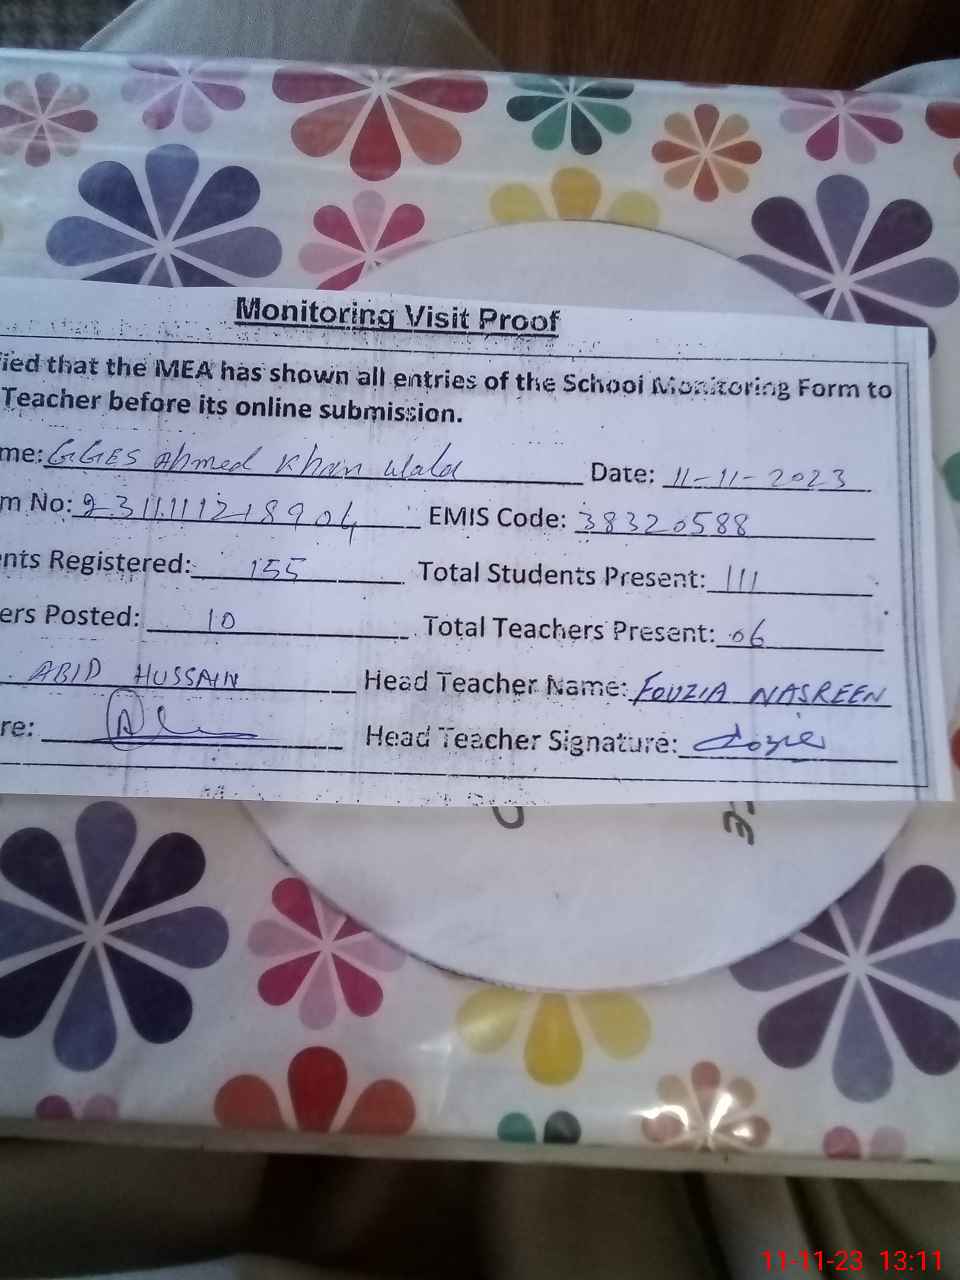 Monitoring Visit Proof
fied that the MEA has shown all entries of the School Monitoring Form to
Teacher before its online submission.
me: GGES Ahmed Khan Wala Date: 11-11-2023
m No: 231111218904 EMIS Code: 38320588
nts Registered: 155 Total Students Present: 111
ers Posted: 10 Total Teachers Present: 06
ABID HUSSAIN Head Teacher Name: FOUZIA NASREEN
re: Head Teacher Signature:
11-11-23 13:11